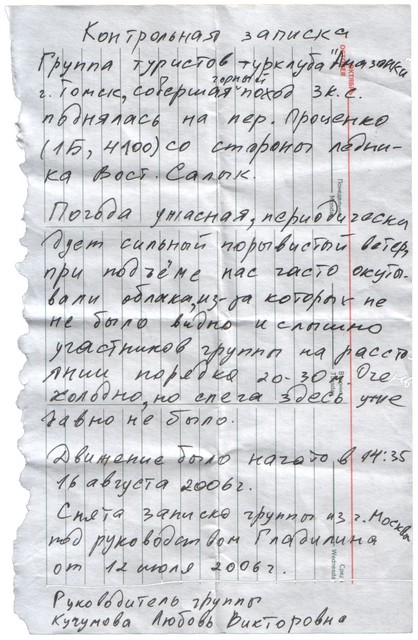 Контрольная записка
Группа туристов турклуба "Амазонки"
г. Томск, совершая горный поход 3 к.с.
поднялась на пер. Проценко
(1Б, 4100) со стороны ледни-
ка Вост. Салык.
Погода ужасная, периодически
дует сильный порывистый ветер,
при подъёме нас часто окуты-
вали облака, из-за которых не
не было видно и слышно
участников группы на расстоя-
нии порядка 20-30м. Оче
холодно, но снега здесь уже
давно не было.
Движение было начато в 14:35
16 августа 2006г.
Снята записка группы из г. Москвы
под руководством Гладилина
от 12 июля 2006г.
Руководитель группы
Кучумова Любовь Викторовна